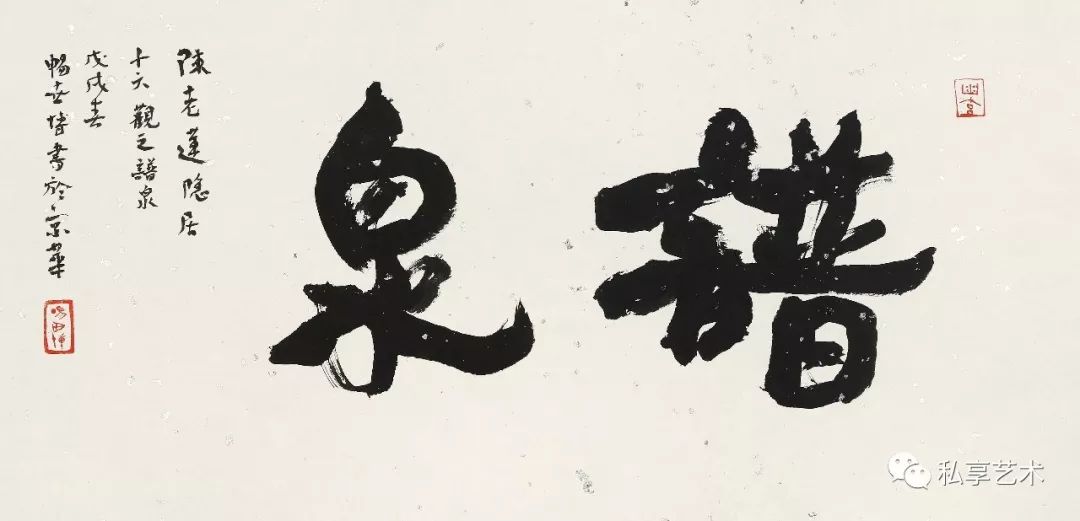 譜泉
陳老蓮隱居
十六觀之譜泉
戊戌春
書於京華
私享艺术